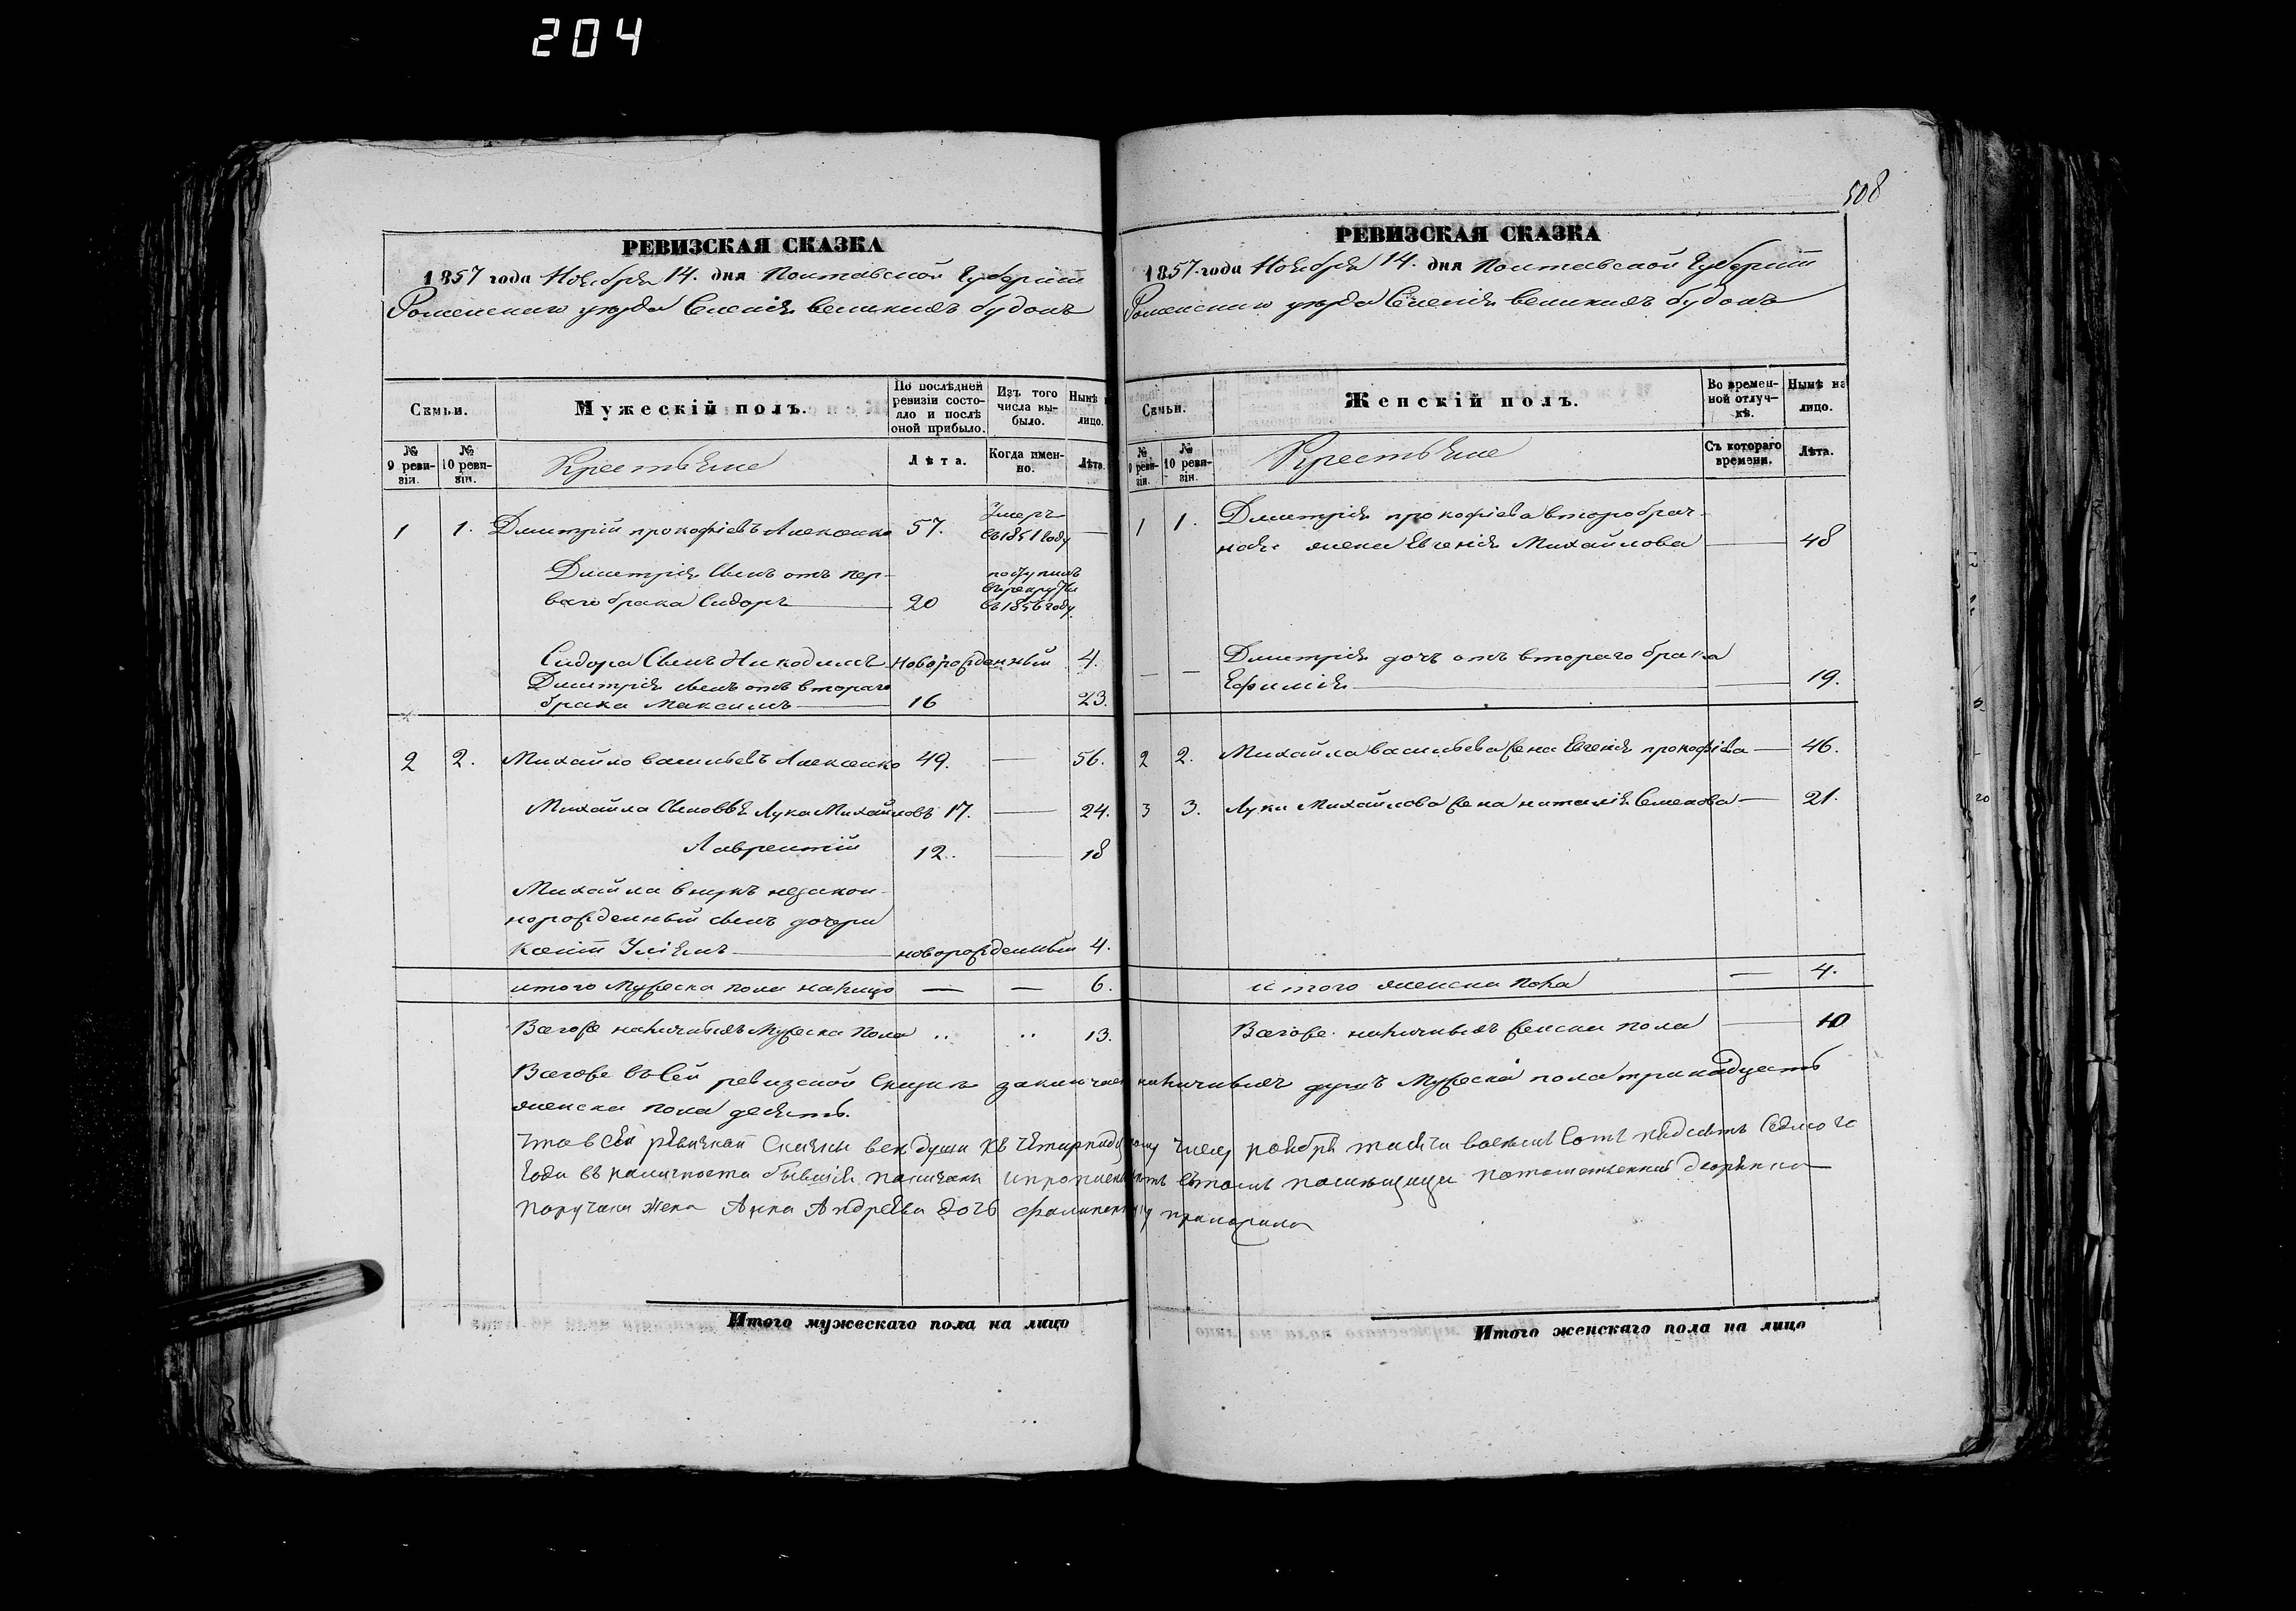 204
508
РЕВИЗСКАЯ СКАЗКА
1857 года Ноября 14. дня Полтавской Губерніи
Роменскаго уезда Селенія великихъ будокъ
Семьи.
Мужескій полъ.
По послѣдней ревизіи состояло и послѣ оной прибыло.
Изъ того числа выбыло.
Нынѣ на лицо.
№ 9 ревизіи.
№ 10 ревизіи.
Крестьяне
Лѣта.
Когда именно.
Лѣта.
1 1. Дмитрій прокофіевъ Алексенко 57. Умеръ въ 1851 году —
Дмитрія сынъ отъ пер-
ваго брака Сидоръ 20 поступилъ въ рекруты въ 1856 году
Сидора Сынъ Никодимъ новорожденный 4.
Дмитрія сынъ отъ втораго
брака Максимъ 16 23.
2 2. Михайло васильевъ Алексенко 49. — 56.
Михайла Сыновья Лука Михайловъ 17. — 24.
Лаврентій 12. — 18
Михайла внукъ незакон-
норожденный сынъ дочери
Ксеніи Уліянъ новорожденный 4.
итого Мужеска пола налицо — — 6.
Всегоже наличныхъ Мужеска Пола .. .. 13.
РЕВИЗСКАЯ СКАЗКА
1857 года Ноября 14. дня Полтавской Губерніи
Роменскаго уезда Селенія великихъ будокъ
Семьи.
Женскій полъ.
Во временной отлучкѣ.
Нынѣ на лицо.
№ 9 ревизіи.
№ 10 ревизіи.
Крестьяне
Съ котораго времени.
Лѣта.
1 1. Дмитрія прокофіева второбрач-
ная жена Евгенія Михайлова — 48
— — Дмитрія дочь отъ втораго брака
Ефимія — 19.
2 2. Михайла васильева жена Евгенія прокофіева — 46.
3 3. Луки Михайлова жена наталія Семенова — 21.
итого женска пола — 4.
Всегоже наличныхъ женска пола — 10
Всегоже въ Сей ревизской Сказке наличныхъ душъ Мужеска пола тринадцать
женска пола десять.
что в сей Сказки все души къ числу ноября тысяча восемь Сотъ Седмого
года въ наличности бывшія
жена Анна Андреева дочь
Итого мужескаго пола на лицо
Итого женскаго пола на лицо